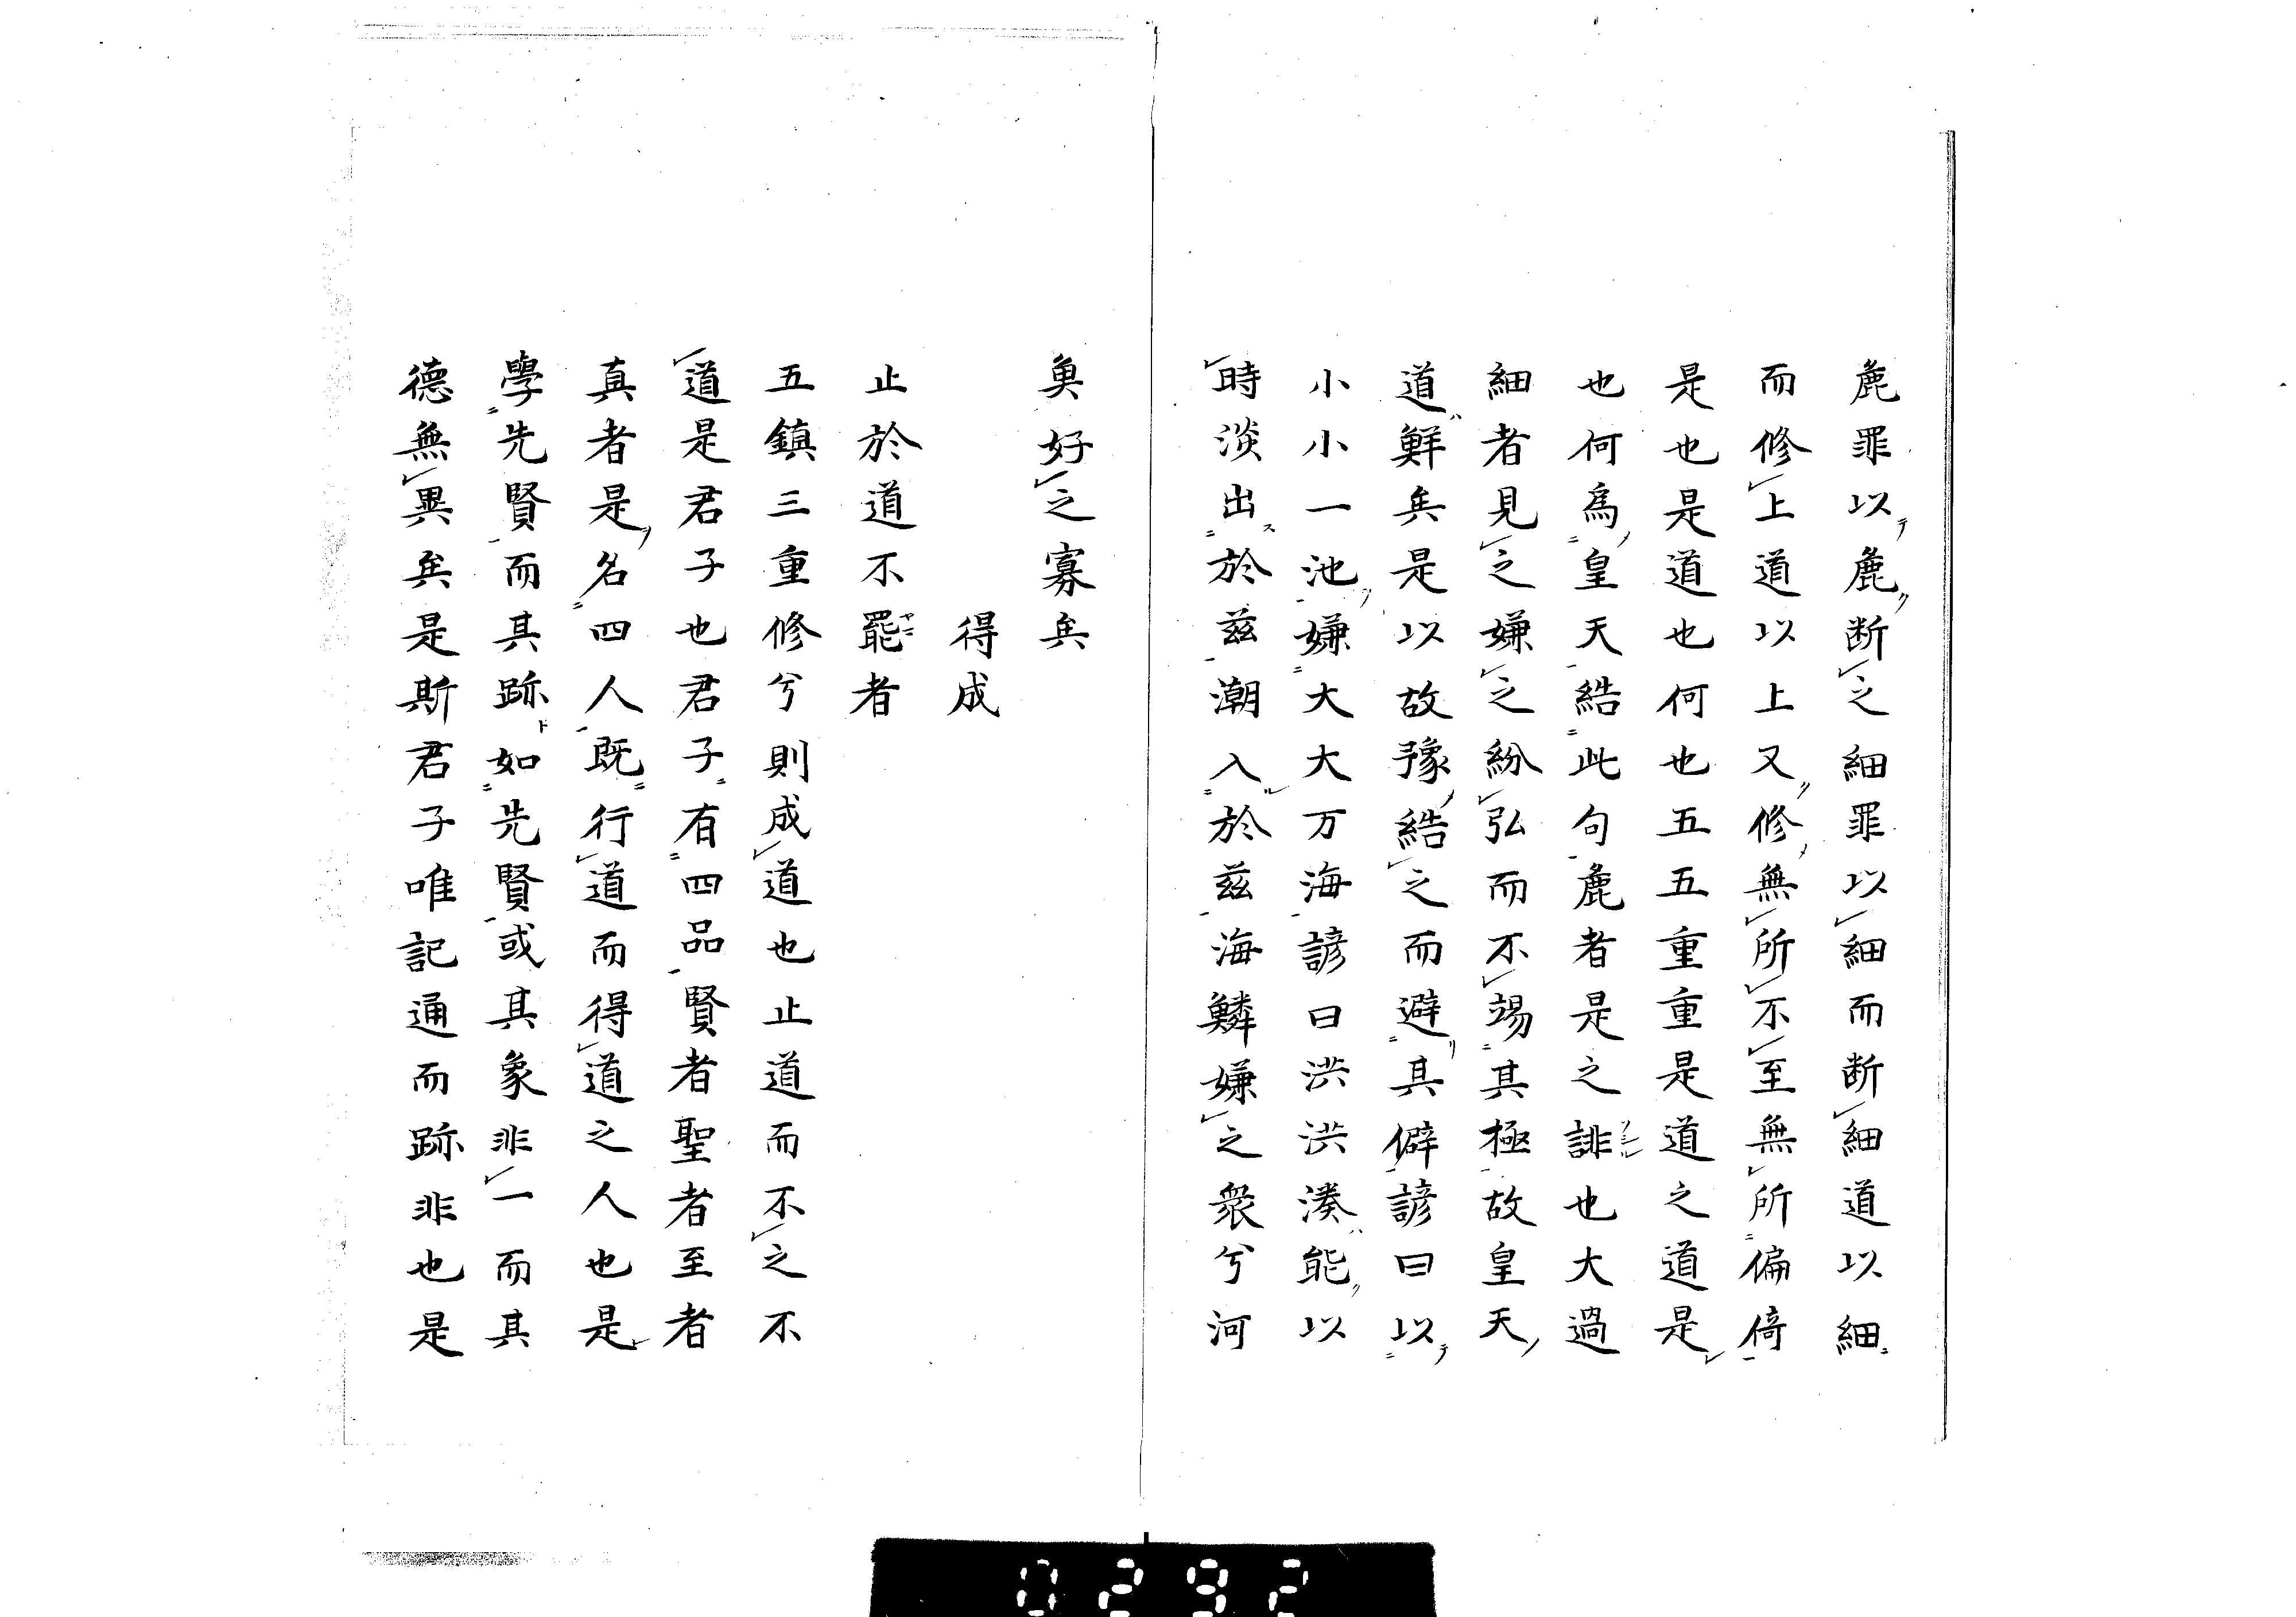 麁罪以麁断之細罪以細而断細道以細
而修上道以上又修無所不至無所偏倚
是也是道也何也五五重重是道之道是
也何為皇天結此句麁者是之誹也大過
細者見之嫌之紛弘而不竭其極故皇天
道鮮矣是以故豫結之而避其僻諺曰以
小小一池嫌大大万海諺曰洪洪湊能以
時淡出於茲潮入於茲海鱗嫌之衆兮河
魚好之寡矣
得成
止於道不罷者
五鎮三重修兮則成道也止道而不之不
道是君子也君子有四品賢者聖者至者
真者是名四人既行道而得道之人也是
學先賢而其跡如先賢或其象非一而其
德無異矣是斯君子唯記通而跡非也是
0292